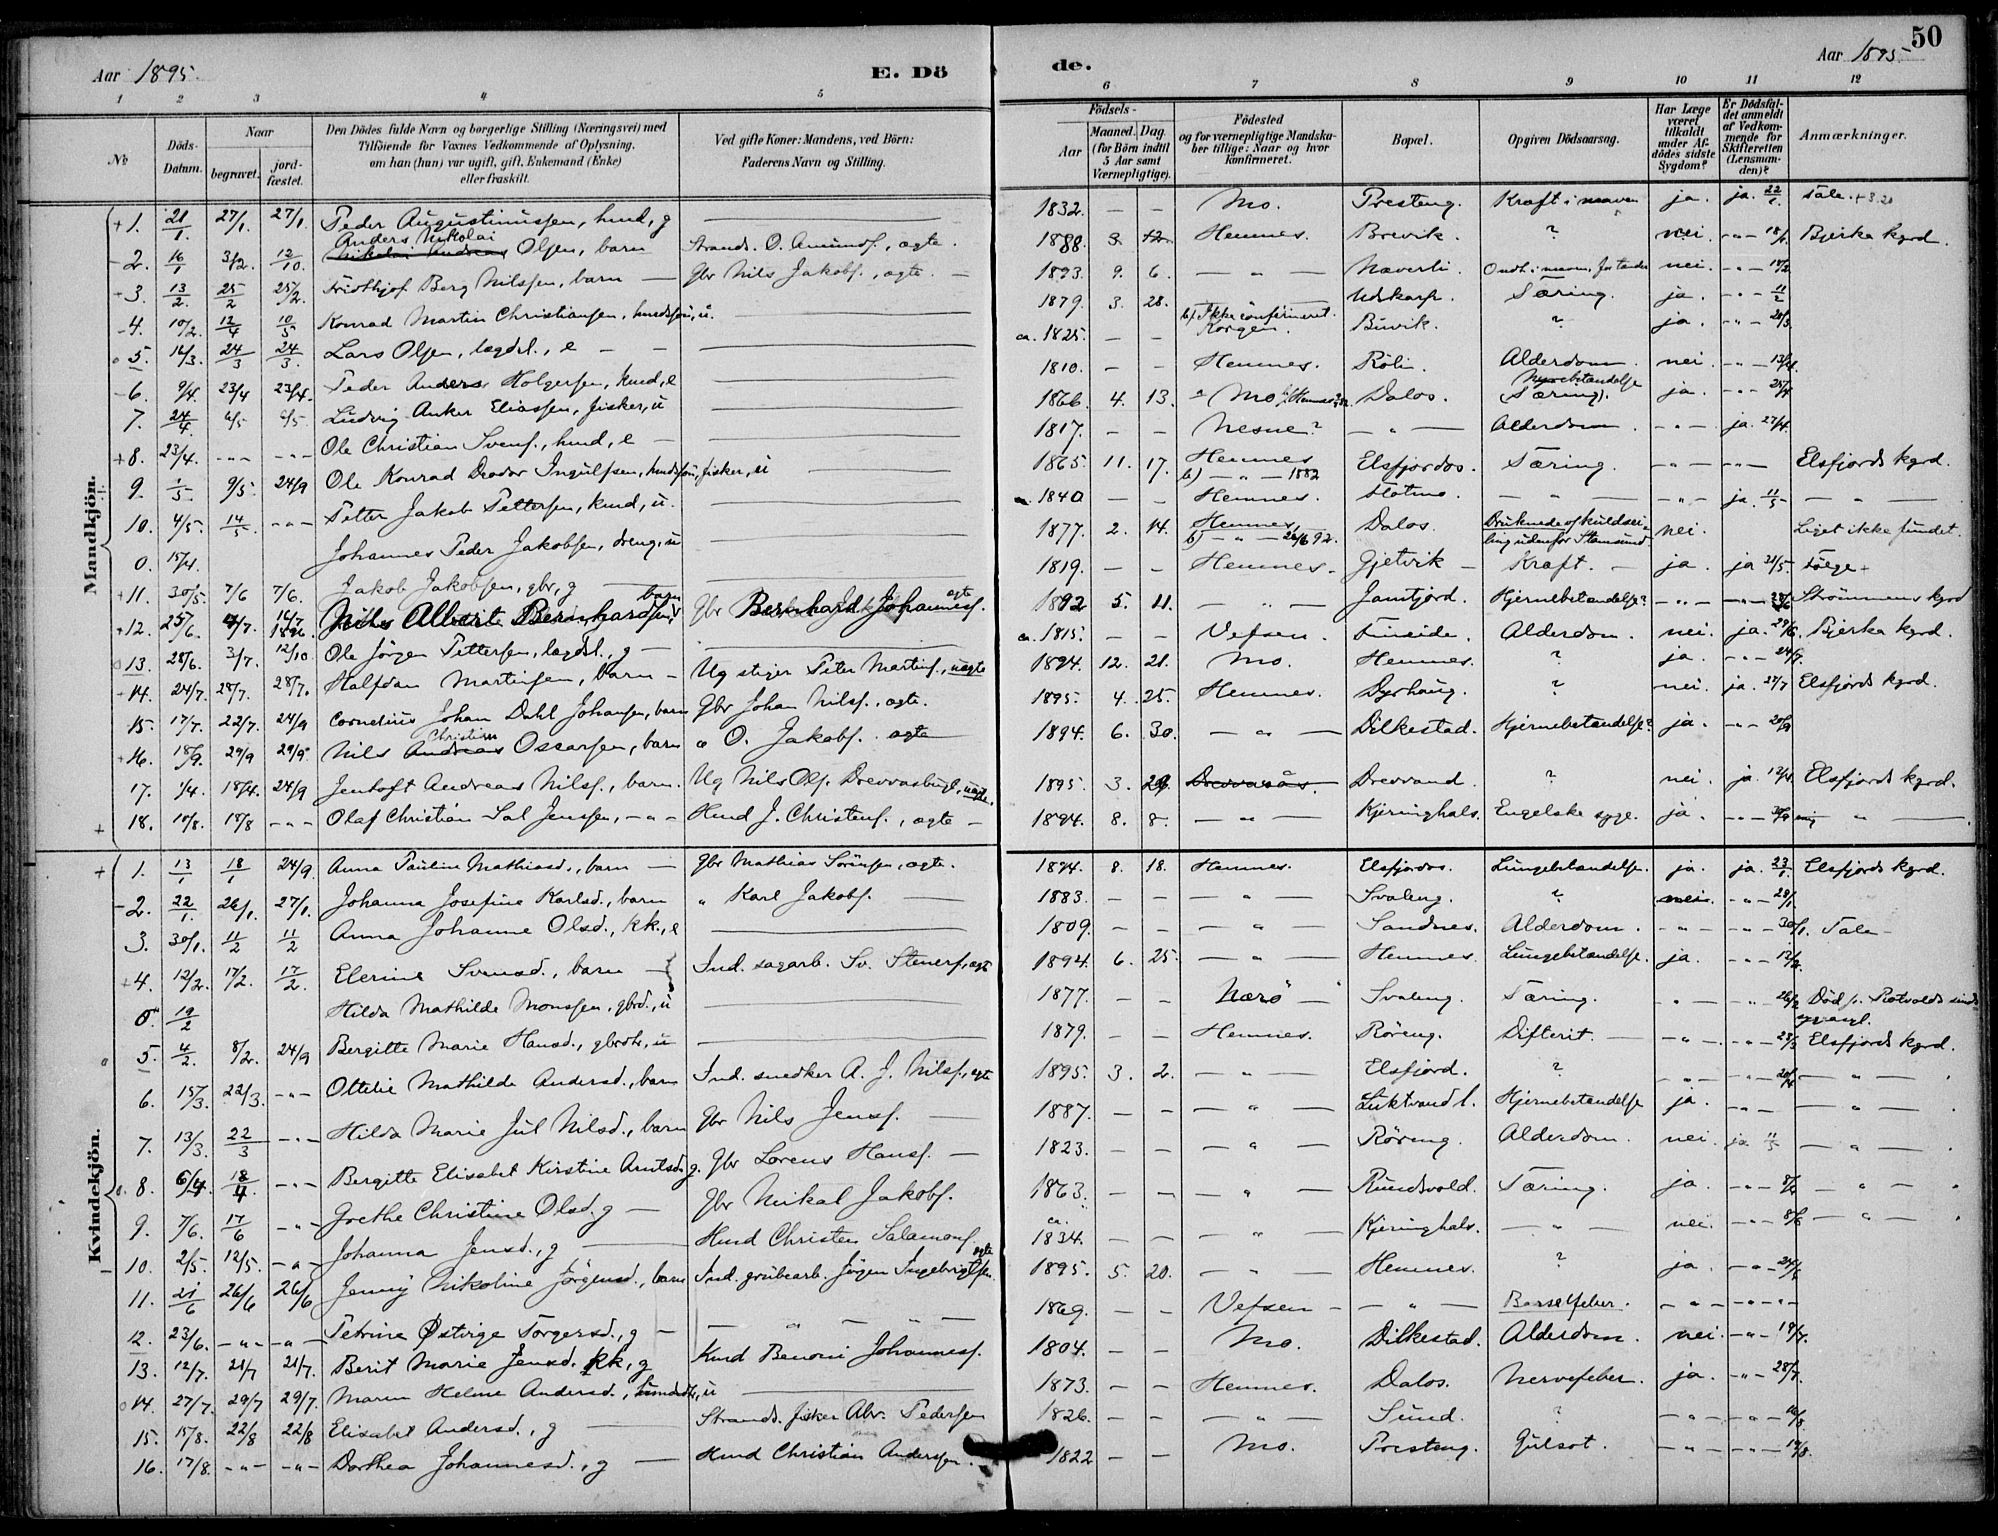 50
Aar 1895.
E. Dö
de.
Aar 1895
1 2 3 4 5 6 7 8 9 10 11 12
No
Döds-Datum.
Naar
begravet.
jord-fæstet.
Den Dödes fulde Navn og borgerlige Stilling (Næringsvei) med
Tilföiende for Voxnes Vedkommende af Oplysning,
om han (hun) var ugift, gift, Enkemand (Enke)
eller fraskilt.
Ved gifte Koner: Mandens, ved Börn:
Faderens Navn og Stilling.
Födsels-
Aar
Maaned. Dag.
(for Börn indtil
5 Aar samt
Værnepligtige).
Födested
og for værnepligtige Mandska-
ber tillige: Naar og hvor
konfirmeret.
Bopæl.
Opgiven Dödsaarsag.
Har Læge
været
tilkaldt
under Af-
dödes sidste
Sygdom?
Er Dödsfal-
det anmeldt
af Vedkom-
mende for
Skifteretten
(Lensman-
den)?
Anmærkninger.
Mandkjön.
+ 1. 21/1 27/1. 27/1 Peder Augustinussen, hmd, g — 1832. — — Mo. Presteng. Kræft i maven ja. ja. 22/1 Tale.
Anders Nikolai
- 2. 16/1 3/2. 12/10. Nikolai Andreas Olsen, barn Strands. O. Amundf., ægte. 1888. 3. 12. Hemnes. Brevik. ? nei. -"- 18/1 Bjerka kgrd.
+ 3. 13/2. 25/2 25/2. Fridthjof Berg Nilssen, barn — Gbr Nils Jakobf., ægte. — 1893 9. 6. — " — Næverli. nei. -"-
- 4. 10/2. 12/4 10/5 Konrad Martin Christiansen, u. — 1879. 3. 28. Ikke confirmeret. Udskarp. Tæring. ja. -"- 11/2
5. 16/3. 24/3 24/3. Lars Olsen, lægdsl., e — — ca. 1825. — — Korgen. Buvik. ? ja. -"- 20/3
- 6. 9/4. 23/4 23/4. Peder Anders Holgersen, kmd, e — 1810. — — Hemnes. Röli. Alderdom. nei. -"- 13/4
7. 24/4. 6/5 6/5. Ludvig Anker Eliassen, fisker, u — 1866. 4. 13. Mo Dalos. Nyrebetændelse (Tæring). ja. -"-
+ 8. 23/4. -"- -"- Ole Christian Svenf., hmd, e — — 1817. — — Nesne? — " — Alderdom. -"- ja. 27/4.
9. 1/5 9/5. 24/9 Ole Konrad Deodor Ingulfsen, fisker, u — 1865. 11. 17. Hemnes b) — " — 1882 Elsfjordos. Tæring. -"- -"- Elsfjords kgrd.
10. 4/5. 14/5 -"- Petter Jakob Pettersen, kmd, u. — 1840 — — Hemnes. — " — -"- ja. 11/5 — " —
0. 15/4. Johannes Peder Jakobsen, dreng, u — 1877. 2. 14. Hemnes, b) — " — 26/6 92. Dalos. Druknede af kuldsei-ling udenfor Stamsund nei. Liget ikke fundet.
+ 11. 30/5. 7/6 7/6. Jakob Jakobsen, gbr, g — — 1819. — — Hemnes. Gjetvik — Kræft. — ja. ja 21/5.
+ 12. 25/6. 4/7. 14/7 1896. Nils Albert Bernhardsen barn Gbr Bernhard Johannesf. ægte 1892 5. 11. — " — Jamtjord. Hjernebetændelse? -"- -"- Strömmens kgrd
13. 28/6. 3/7. 12/10 Ole Jörgen Pettersen, lægdsl., g — — 1815. — — Vefsen. Fineide. Alderdom. nei. ja. 29/6. Bjerka kgrd.
+ 14. 24/7. 28/7. 28/7. Halfdan Martinsen, barn — Ug stiger Peter Martinf., uægte 1894. 12. 21. Mo. Hemnes. ? ja. -"- 24/7.
15. 17/7. 22/7. 24/9 Cornelius Johan Dahl Johansen, barn Gbr Johan Nilsf., ægte. 1895. 4. 25. Hemnes. Dyrhaug. ? nei. ja. 27/7 Elsfjords kgrd.
Christian
+ 16. 18/9. 29/9 29/9. Nils Andreas Oscarsen, barn " O. Jakobf. ægte 1894. 6. 30. — " — Dilkestad. Hjernebetændelse? ja. -"- 20/9
17. 1/4. 18/4. 24/9 Jentoft Andreas Nilsf., barn. Ug Nils Olf. uægte. 1895. 3. 29. Drevvasaas. Drevvand. ? nei. ja. 12/4. Elsfjords kgrd.
+ 18. 10/8. 18/8 -"- Olaf Christian Sal Jenssen, -"- Hmd J. Christenf., ægte — 1894. 8. 8. — " — Kjeringhals. Engelske syge. ja. -"- — " —
Kvindekjön.
+ 1. 13/1 18/1 24/9. Anna Pauline Mathiasd., barn — Gbr Mathias Sörensen, ægte. 1894. 8. 18. Hemnes. Elsfjordos. Lungebetændelse. ja. ja. 23/1. Elsfjords kgrd.
- 2. 22/1. 26/1. 27/1. Johanna Josefine Karlsd., barn " Karl Jakobf. — 1883. — — — " — Svaleng. ? nei. -"- 28/1
3. 30/1. 11/2 11/2 Anna Johanne Olsd., kk., e — 1809. — — — " — Sandnes. Alderdom. -"- -"- 30/1. Tale —
+ 4. 12/2. 17/2. 17/2. Elerine Svensd., barn — Ind. sagarb. Sv. Stenerf., ægte 1894. 6. 25. — " — Hemnes. Lungebetændelse. ja. -"- 12/2.
0. 19/2 Hilda Mathilde Monssen, gbrd., u — 1877. — — Nærö Svaleng. Tæring. -"- -"- 26/2 Död p. Rotvolds sinds-sygeasyl.
5. 4/2. 8/2. 24/9 Bergitte Marie Hansd., gbrdtr, u — 1879. — — Hemnes. Röreng. Difterit. — -"- -"- Elsfjords kgrd.
6. 15/3. 22/3. -"- Ottelie Mathilde Andersd., barn Ind. snedker A. J. Nilsf., ægte 1895. 3. 2. — " — Elsfjord. ? -"- -"- — " —
7. 13/3. 22/3 -"- Hilda Marie Jul Nilsd., barn Gbr Nils Jensf. — 1887. — — — " — Luktvandl. Hjernebetændelse ja. -"- — " —
8. 6/4. 18/4. -"- Bergitte Elisabet Kirstine Arntsd. g. Gbr Lorens Hansf. — 1823. — — — " — Röreng. Alderdom. nei. ja. — " —
9. 7/6. 17/6 -"- Grethe Christine Olsd. g — Gbr Mikal Jakobf. 1863. — — — " — Rundvold. Tæring. ja. -"- — " —
10. 2/5. 12/5. -"- Johanna Jensd., g — Hmd Christen Salamonf. ca. 1834. — — — " — Kjeringhals. — " — nei. -"- 8/6 — " —
11. 21/6 26/6 26/6 Jenny Nikoline Jörgensd., barn Ind. grubearb. Jörgen Ingebrigtsen ægte 1895. 5. 20. — " — Hemnes. ? ja. -"- 24/6
12. 23/6. -"- -"- Petrine Östvige Torgersd., g — — " — " — 1869. — — Vefsen — — " — Barselfeber. -"- -"-
13. 12/7. 21/7 21/7. Berit Marie Jensd. kk, g Kmd Benoni Johannesf. 1804. — — Mo. Dilkestad. Alderdom. nei. -"- 19/7.
14. 27/7. 29/7 29/7. Maren Helene Andersd., u — 1873. — — Hemnes. Dalos. Nervefeber. ja. -"- 28/7.
15. 15/8. 22/8 22/8 Elisabet Andersd., g — Strands. fisker Abr. Pedersen 1826. — — — " — Sund. ? -"- -"-
16. 17/8. -"- -"- Dorthea Johannesd., g — Hmd Christian Anderssen. 1822 — — Mo. Presteng. Gulsot. -"- -"- 19/8.